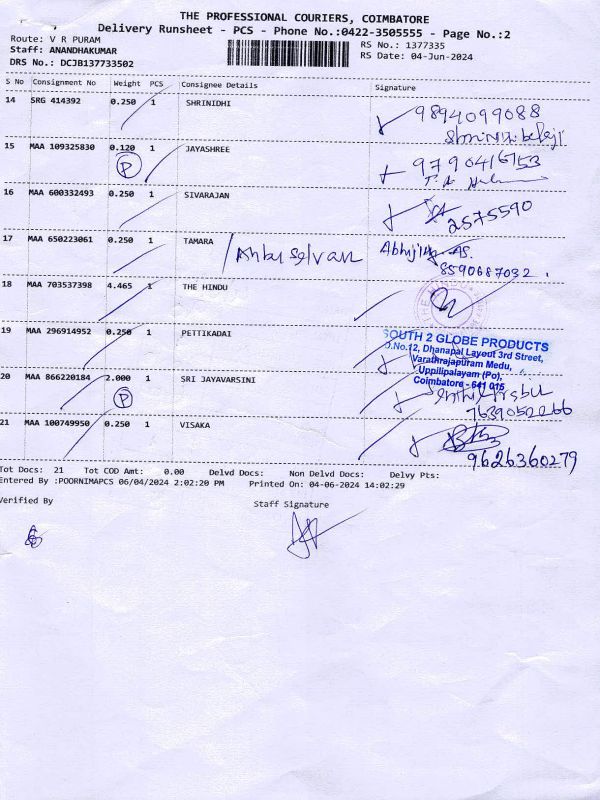 THE PROFESSIONAL COURIERS, COIMBATORE
Delivery Runsheet - PCS - Phone No.:0422-3505555 - Page No.:2
Route: V R PURAM
Staff: ANANDHAKUMAR
DRS No.: DCJB137733502
RS No.: 1377335
RS Date: 04-Jun-2024
S No Consignment No Weight PCS Consignee Details Signature
14 SRG 414392 0.250 1 SHRINIDHI 9894099088
15 MAA 109325830 0.120 1 JAYASHREE 9790416753
P
16 MAA 600332493 0.250 1 SIVARAJAN
2575590
17 MAA 650223061 0.250 1 TAMARA Anbu Selvan
8590687032.
18 MAA 703537398 4.465 1 THE HINDU
19 MAA 296914952 0.250 1 PETTIKADAI
SOUTH 2 GLOBE PRODUCTS
D.No.12, Dhanapal Layout 3rd Street,
Varathrajapuram Medu,
Uppilipalayam (Po),
Coimbatore - 641 015
20 MAA 866220184 2.000 1 SRI JAYAVARSINI
P
7639052266
21 MAA 100749950 0.250 1 VISAKA
9626360279
Tot Docs: 21 Tot COD Amt: 0.00 Delvd Docs: Non Delvd Docs: Delvy Pts:
Entered By :POORNIMAPCS 06/04/2024 2:02:20 PM Printed On: 04-06-2024 14:02:29
Verified By Staff Signature